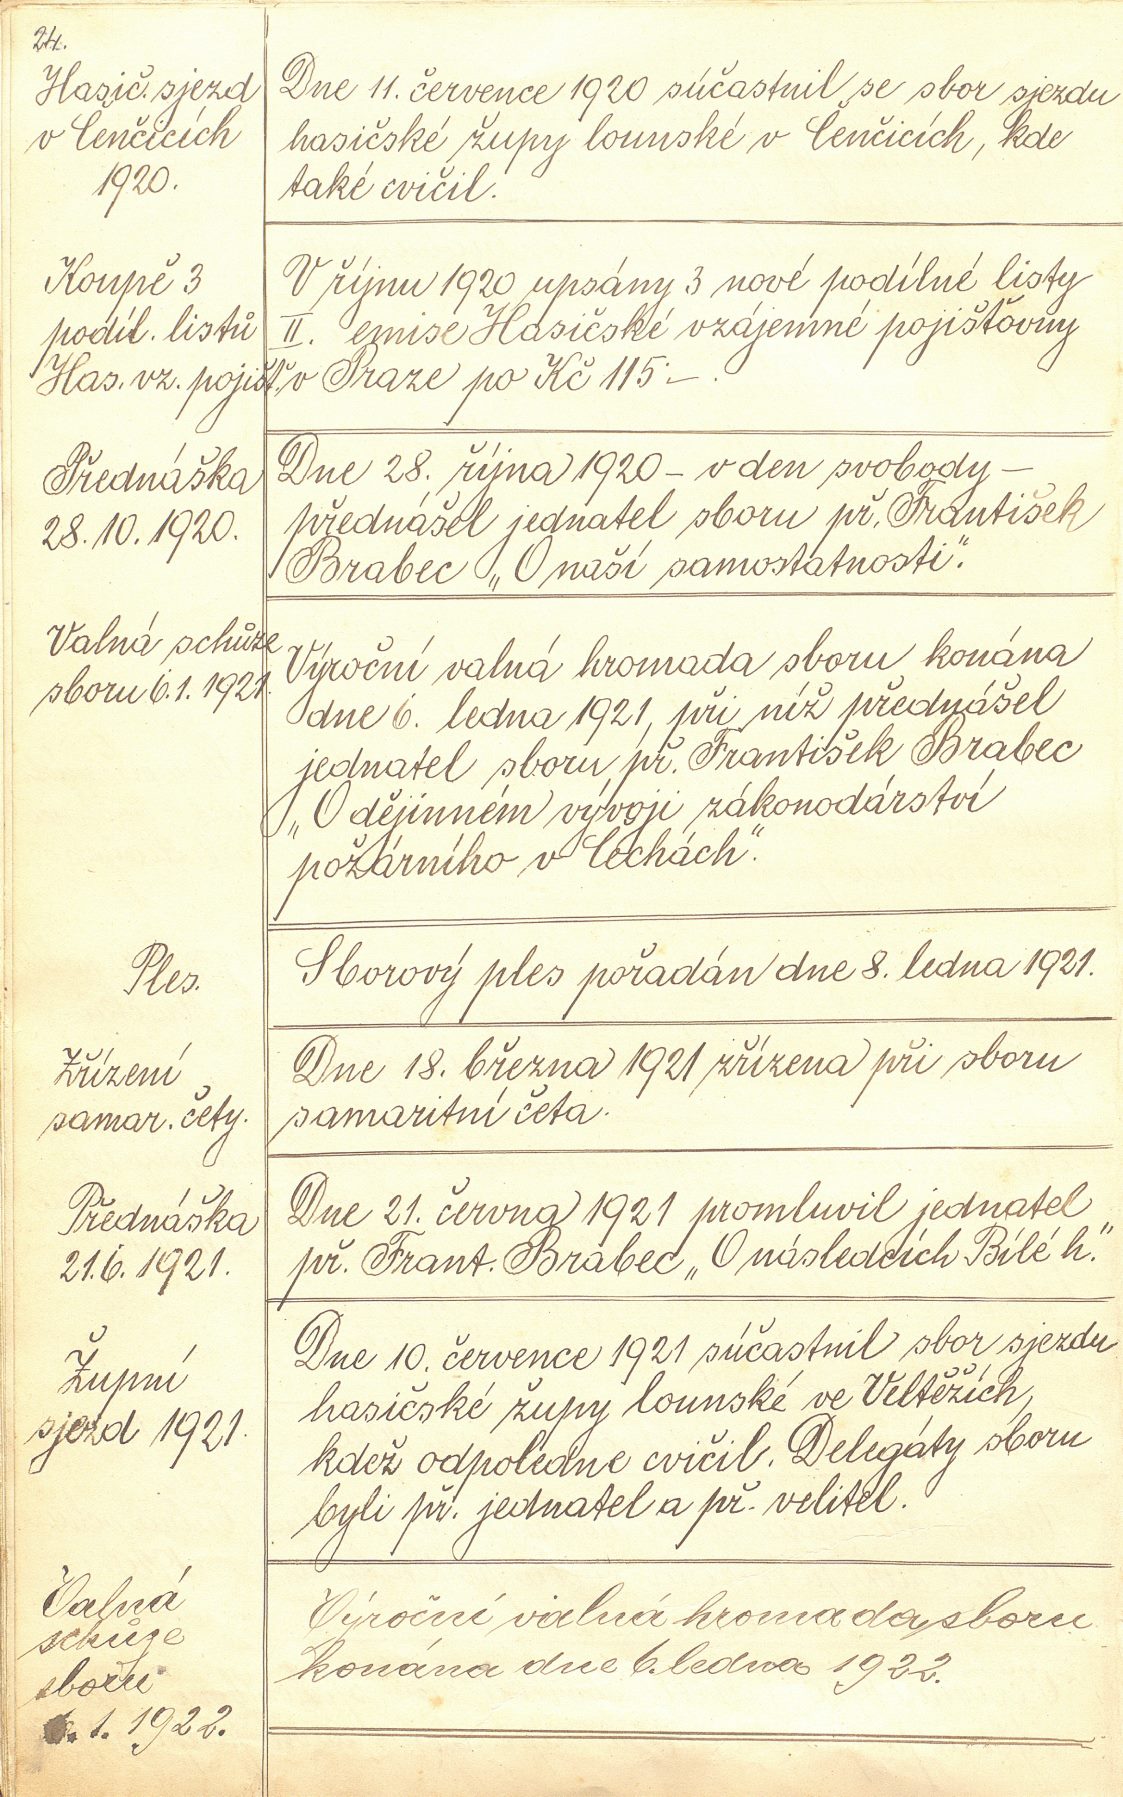 24.
Hasič. sjezd
v Cenčicích
1920.
Dne 11. července 1920 súčastnil se sbor sjezdu
hasičské župy lounské v Cenčicích, kde
také cvičil.
Koupě 3
podíl. listů
Has. vz. pojišť.
V říjnu 1920 upsány 3 nové podílné listy
II. emise Hasičské vzájemné pojišťovny
v Praze po Kč 115·–.
Přednáška
28. 10. 1920.
Dne 28. října 1920 – v den svobody –
přednášel jednatel sboru př. František
Brabec „O naší samostatnosti".
Valná schůze
sboru 6. 1. 1921.
Výroční valná hromada sboru konána
dne 6. ledna 1921, při níž přednášel
jednatel sboru př. František Brabec
„O dějinném vývoji zákonodárství
požárního v Čechách".
Ples.
Sborový ples pořadán dne 8. ledna 1921.
Zřízení
samar. čety.
Dne 18. března 1921 zřízena při sboru
samaritní četa.
Přednáška
21. 6. 1921.
Dne 21. června 1921 promluvil jednatel
př. Frant. Brabec „O následcích Bílé h."
Župní
sjezd 1921.
Dne 10. července 1921 súčastnil sbor sjezdu
hasičské župy lounské ve Veltěžích,
kdež odpoledne cvičil. Delegáty sboru
byli př. jednatel a př. velitel.
Valná
schůze
sboru
6. 1. 1922.
Výroční valná hromada sboru
konána dne 6. ledna 1922.